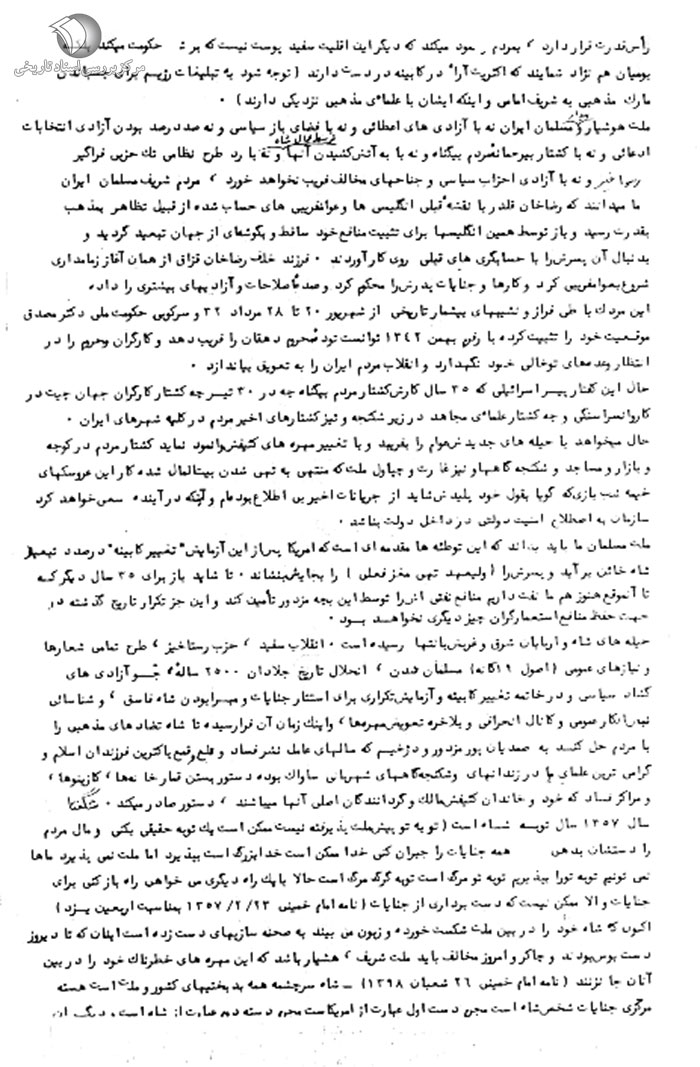 مرکز بررسی اسناد تاریخی
رأس قدرت قرار دارد ، بمردم وانمود میکند که دیگر این اقلیت سفید پوست نیست که بر حکومت میکند
بومیان هم نژاد شمایند که اکثریت آراء در کابینه در دست دارند ( توجه شود به تبلیغات رژیم برای چسباندن
مارک مذهبی به شریف امامی و اینکه ایشان با علمای مذهبی نزدیکی دارند ) ۰
ملت هوشیار و مسلمان ایران نه با آزادی های اعطائی و نه با فضای باز سیاسی و نه صد در صد بودن آزادی انتخابات
ادعائی و نه با کشتار بیرحمانه مردم بیگناه و نه با به آتش کشیدن آنها و نه با رد طرح نظامی تک حزبی فراگیر
رستاخیز و نه با آزادی احزاب سیاسی و جناحهای مخالف فریب نخواهد خورد ، مردم شریف مسلمان ایران
ما میدانند که رضاخان قلدر با نقشه قبلی انگلیسی ها و عوامفریبی های حساب شده از قبیل تظاهر بمذهب
بقدرت رسید و باز توسط همین انگلیسها برای تثبیت منافع خود ساقط و بگوشه‌ای از جهان تبعید گردید و
بدنبال آن پسرش را با حسابگری های قبلی روی کار آوردند ۰ فرزند خلف رضاخان قزاق از همان آغاز زمامداری
شروع بعوامفریبی کرد و کارها و جنایات پدرش را محکوم کرد و وعده اصلاحات و آزادیهای بیشتری را داد
این مردک با طی فراز و نشیبهای بیشمار تاریخی از شهریور ۲۰ تا ۲۸ مرداد ۳۲ و سرکوبی حکومت ملی دکتر مصدق
موقعیت خود را تثبیت کرده با رفرم بهمن ۱۳۴۲ توانست توده محروم دهقان را فریب دهد و کارگران محروم را در
انتظار وعده‌های توخالی خود نگهدارد و انقلاب مردم ایران را به تعویق بیاندازد ۰
حال این کفتار پیر اسرائیلی که ۳۵ سال کارش کشتار مردم بیگناه چه در ۳۰ تیر چه کشتار کارگران جهان چیت در
کاروانسرا سنگی و چه کشتار علمای مجاهد در زیر شکنجه و نیز کشتارهای اخیر مردم در کلیه شهرهای ایران ۰
حال میخواهد با حیله های جدیدش عوام را بفریبد و با تغییر مهره های کثیفش وانمود نماید کشتار مردم در کوچه
و بازار و مساجد و شکنجه گاهها و نیز غارت و چپاول ملت که منتهی به تهی شدن بیت‌المال شده کار این عروسکهای
خیمه شب بازی که گویا بقول خود پلیدش شاید از جریانات اخیر بی اطلاع بوده‌ام و آنکه در آینده سعی خواهد کرد
سازمان به اصطلاح امنیت دولتی در داخل دولت نباشد ۰
ملت مسلمان ما باید بداند که این توطئه ها مقدمه ای است که امریکا پس از این آزمایش " تغییر کابینه " درصدد تبعید
شاه خائن برآید و پسرش را ( ولیعهد تهی مغز فعلی ) را بجایش بنشاند ۰ تا شاید باز برای ۳۵ سال دیگر که
تا آنموقع هنوز هم ما نفت داریم منافع نفتی اش را توسط این بچه مزدور تأمین کند و این جز تکرار تاریخ گذشته در
جهت حفظ منافع استعمارگران چیز دیگری نخواهد بود ۰
حیله های شاه و اربابان شرق و غربش بانتها رسیده است ۰ انقلاب سفید ، حزب رستاخیز ، طرح تمامی شعارها
و نیازهای عمومی ( اصول ۱۹ گانه ) مسلمان شدن ، انحلال تاریخ جلادان ۲۵۰۰ ساله ، جو آزادی های
گشاد سیاسی و در خاتمه تغییر کابینه و آزمایش تکراری برای استتار جنایات و مهبرا بودن شاه فاسق ، و شناسائی
نبض افکار عمومی و کانال انحرافی و بلاخره تعویض مهره‌ها ، واینک زمان آن فرارسیده تا شاه تضادهای مذهبی را
با مردم حل کند به صمدیان پور مزدور و دژخیم که سالهای عامل نشر فساد و قلع و قمع پاکترین فرزندان اسلام و
گرامی ترین علمای ما در زندانهای وشکنجه‌گاههای شهربانی ساواک بوده دستور بستن قمارخانه‌ها ، کازینوها ،
و مراکز فساد که خود و خاندان کثیفش مالک و گردانندگان اصلی آنها میباشند ، دستور صادر میکند ۰ شگفتا
سال ۱۳۵۷ سال توبه شاه است ( توبه تو پیش ملت پذیرفته نیست ممکن است یک توبه حقیقی بکنی و مال مردم
را دستشان بدهی همه جنایات را جبران کنی خدا ممکن است خدا بزرگ است بپذیرد اما ملت نمی پذیرد ماها
نمی تونیم توبه تورا بپذیریم توبه تو مرگ است توبه گرگ مرگ است حالا با یک راه دیگری می خواهی راه باز کنی برای
جنایات و الا ممکن نیست که دست برداری از جنایات ( نامه امام خمینی ۱۳۵۷/۲/۲۳ بمناسبت اربعین یزد )
اکنون که شاه خود را در بین ملت شکست خورده و زبون می بیند به صحنه سازیهای دست زده است اینان که تا دیروز
دست بوس بودند و چاکر و امروز مخالف باید ملت شریف ، هشیار باشد که این مهره های خطرناک خود را در بین
آنان جا نزنند ( نامه امام خمینی ۲۶ شعبان ۱۳۹۸ ) ـ شاه سرچشمه همه بدبختیهای کشور و ملت است هسته
مرکزی جنایات شخص شاه است مجرم دست اول عبارت از امریکاست مجرم دسته دوم عبارت از شاه است ، دیگران